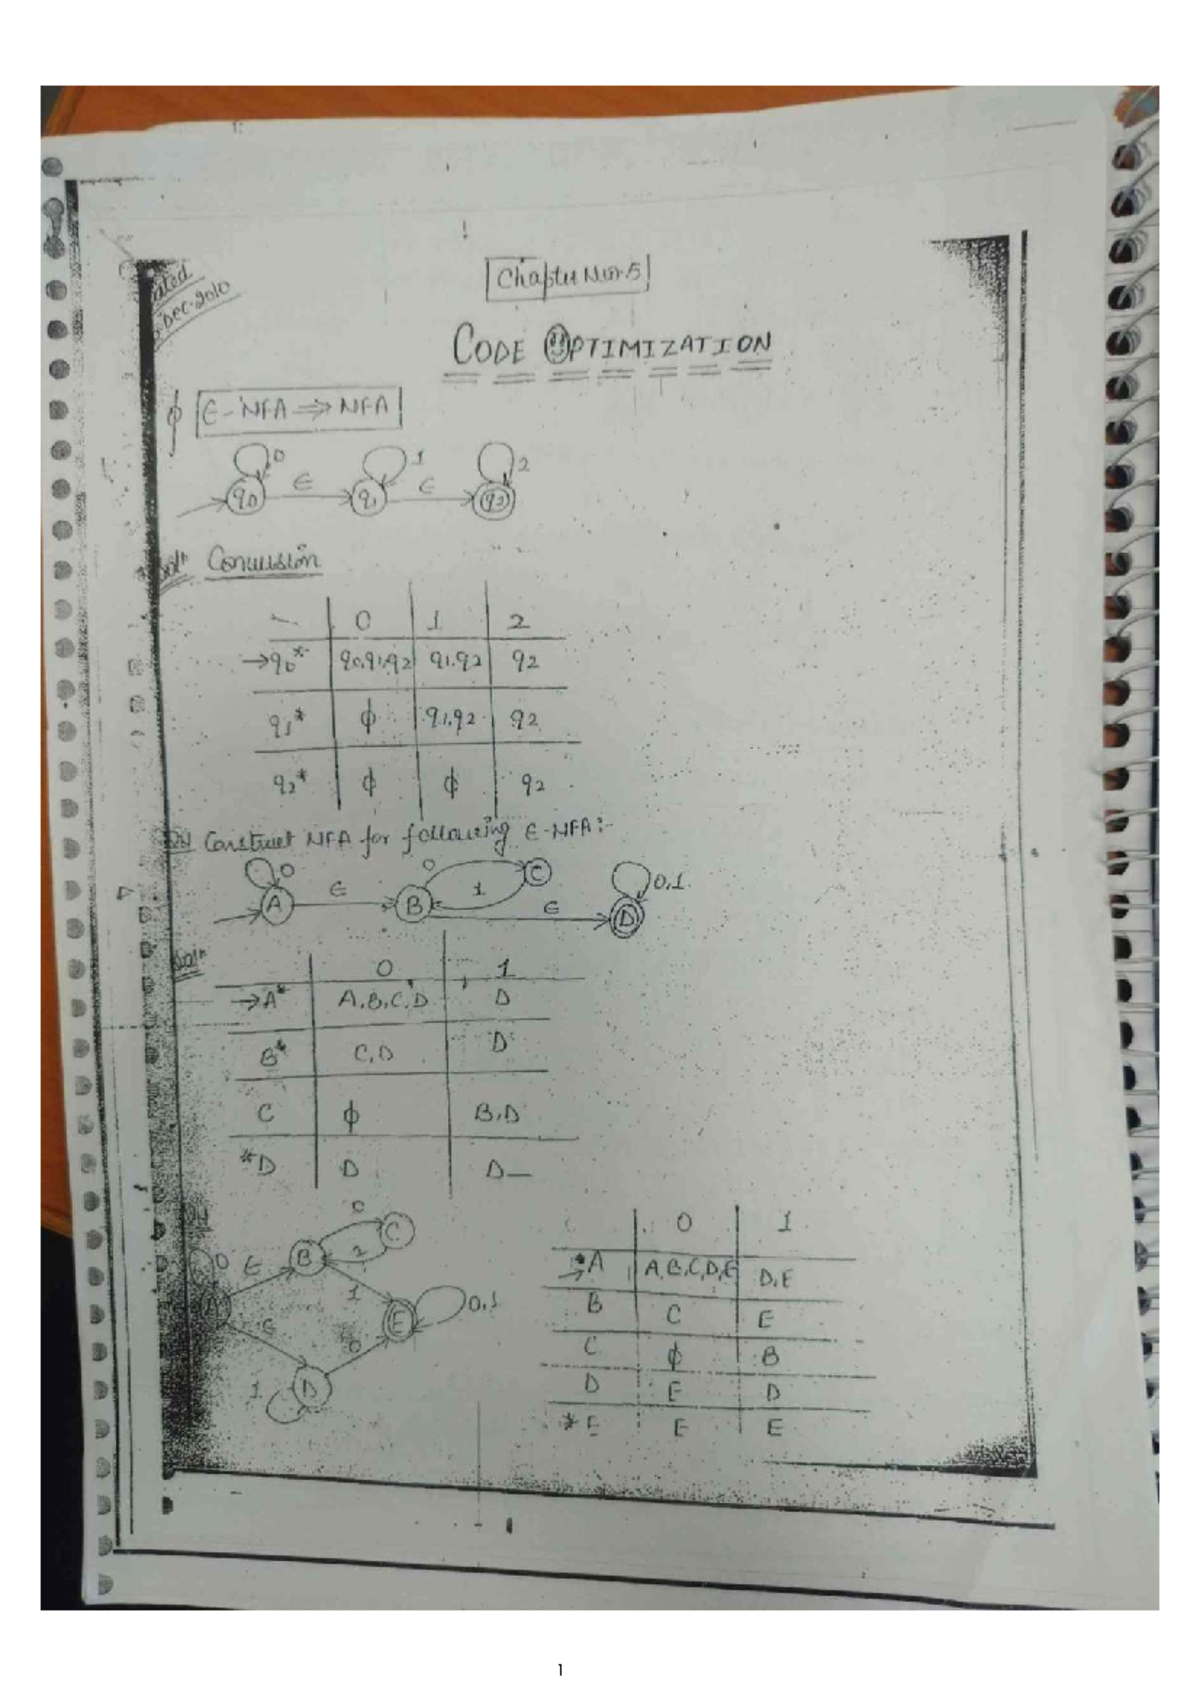 Chapter No:-5
Dec-2010
CODE OPTIMIZATION
ϕ ∈-NFA ⇒ NFA
0 1 2
q0 ∈ q1 ∈ q2
Soln Conversion
0 1 2
→q0* q0,q1,q2 q1,q2 q2
q1* ϕ q1,q2 q2
q2* ϕ ϕ q2
Construct NFA for following ∈-NFA:-
0 0 C 0,1
A ∈ B 1 ∈ D
Soln
0 1
→A* A,B,C,D D
B* C,D D
C ϕ B,D
*D D D
0 C
0 ∈ B 1
A 1 E 0,1
∈ 0
1 D
0 1
→*A A,B,C,D,E D,E
B C E
C ϕ B
D E D
*E E E
1